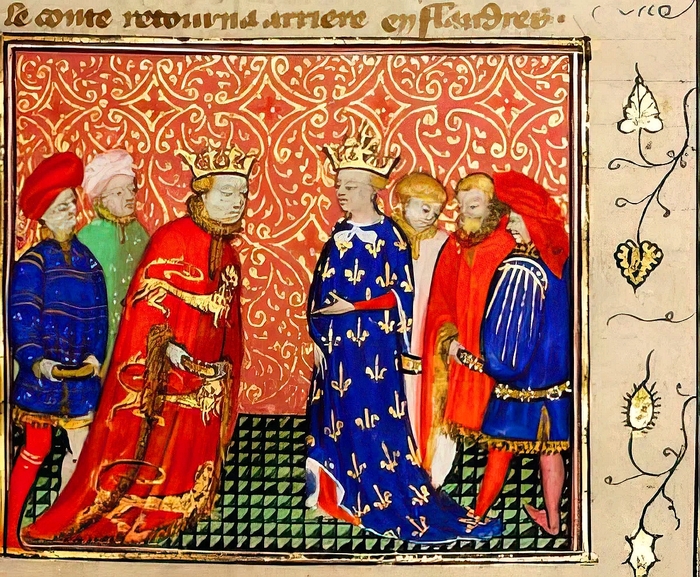 le conte retourna arriere en flandres.